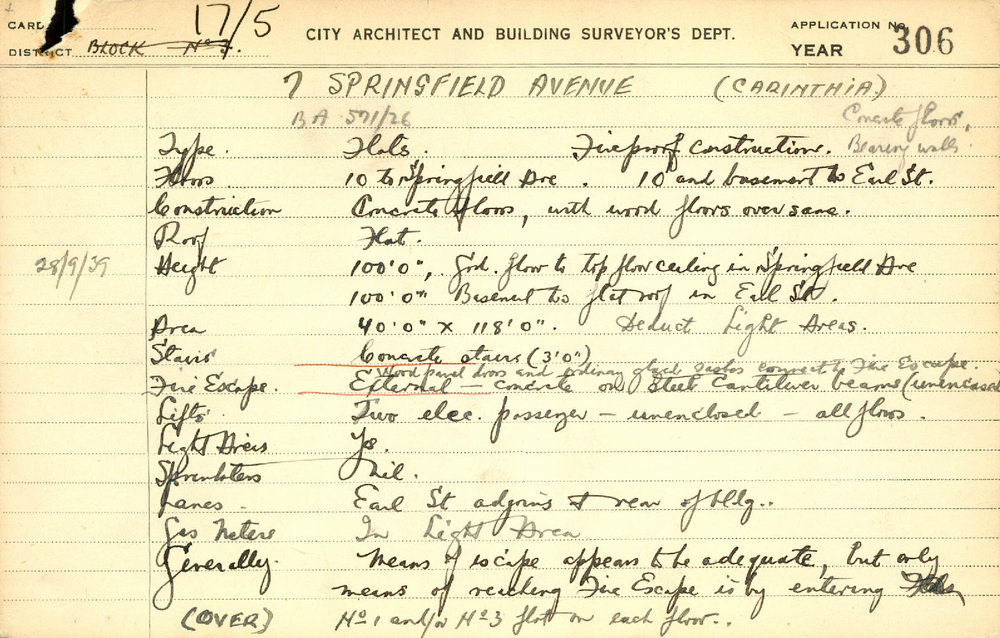 CARD 17/5 CITY ARCHITECT AND BUILDING SURVEYOR'S DEPT. APPLICATION No. 306
DISTRICT BLOCK No 7. YEAR
7 SPRINGFIELD AVENUE (CARINTHIA)
BA 571/26 Concrete floors,
Type. Flats. Fireproof construction. Bearing walls.
Floors 10 to Springfield Ave. 10 and basement to Earl St.
Construction Concrete floors, with wood floors over same.
Roof Flat.
28/9/39 Height 100'0", Grd. floor to top floor ceiling in Springfield Ave
100'0" Basement to flat roof in Earl St.
Area 40'0" x 118'0". Deduct Light Areas.
Stairs Concrete stairs (3'0")
Wood panel doors and ordinary glazed sashes connect to Fire Escape.
Fire Escape. External – concrete on steel cantilever beams (unencased
Lifts Two elec. passenger – unenclosed – all floors.
Light Areas Yes.
Sprinklers Nil.
Lanes. Earl St adjoins at rear of bldg..
Gas Meters In Light Area
Generally. Means of escape appears to be adequate, but only
means of reaching Fire Escape is by entering
(OVER) No 1 and/or No 3 flat on each floor..